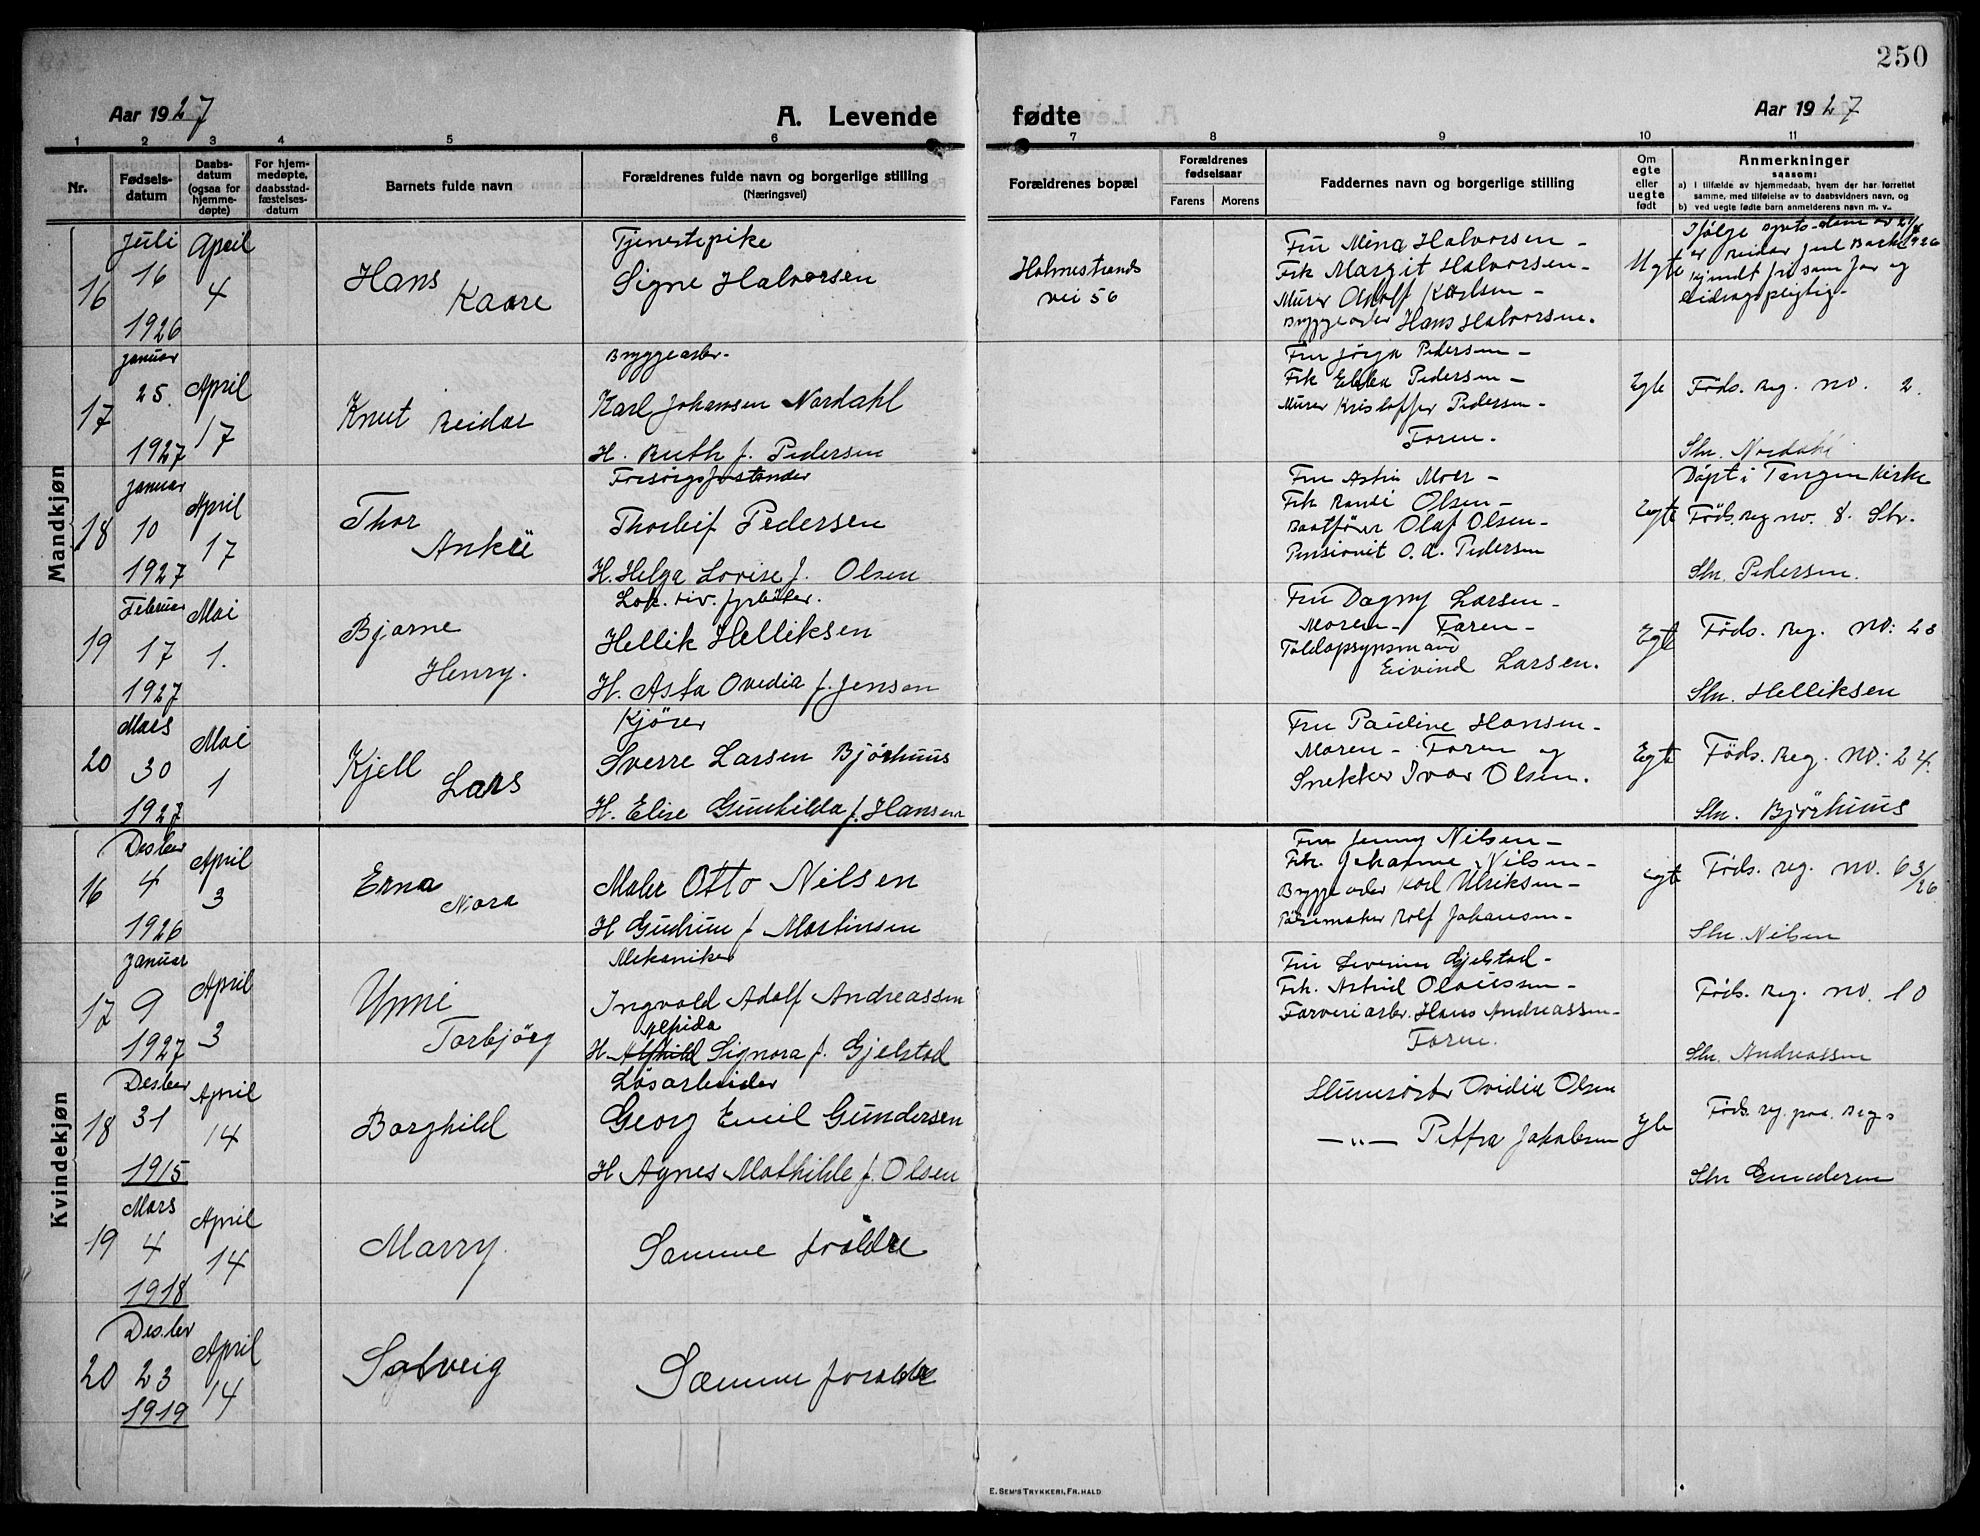 250
Aar 1927
A. Levende
fødte
Aar 1927
1 2 3 4 5 6 7 8 9 10 11
Nr.
Fødsels-
datum
Daabs-
datum
(ogsaa for
hjemme-
døpte)
For hjem-
medøpte,
daabsstad-
fæstelses-
datum
Barnets fulde navn
Forældrenes fulde navn og borgerlige stilling
(Næringsvei)
Forældrenes bopæl
Forældrenes
fødselsaar
Farens Morens
Faddernes navn og borgerlige stilling
Om
egte
eller
uegte
født
Anmerkninger
saasom:
a) I tilfælde av hjemmedaab, hvem der har forrettet
samme, med tilføielse av to daabsvidners navn, og
b) ved uegte fødte barn anmelderens navn m. v.
Mandkjøn
16
Juli
16
1926
April
4
Hans
Kaare
Tjenestepike
Signe Halvorsen
Holmestrands
vei 56
Fru Mina Halvorsen -
Frk Margit Halvorsen -
Murer Adolf Karlsen -
Bryggearb Hans Halvorsen.
Uegte
Ifølge
er Reidar
kjendt som far og
bidragspligtig.
17
Januar
25.
1927
April
17
Knut Reidar
Bryggearb.
Karl Johansen Nordahl
H. Ruth f. Pedersen
Fru Jørga Pedersen -
Frk Ebba Pedersen -
Murer Kristoffer Pedersen -
Faren.
Egte
Føds. reg. no. 2.
Shr. Nordahl
18
Januar
10
1927
April
17
Thor
Forsørgsforstander
Thorleif Pedersen
H. Helga Lovise f. Olsen
Fru Astri Moer -
Frk Randi Olsen -
Baatfører Olaf Olsen -
Pensionist O. A. Pedersen
Egte
Døpt i Tangen Kirke
Føds. reg no. 8. Str.
Shr. Pedersen.
19
Februar
17
1927
Mai
1.
Bjarne
Henry.
Lok. rev. fyrbøter.
Hellik Helliksen
H. Asta Ovedia f. Jensen
Fru Dagny Larsen -
Moren - Faren -
Toldopsynsmand
Eivind Larsen.
Egte
Føds. Reg. no: 23
Shr. Helliksen
20
Mars
30
1927
Mai
1
Kjell
Lars
Kjører
Sverre Larsen Bjørhuus
H. Elise Gunhilda f. Hansen
Fru Pauline Hansen -
Moren - Faren og
Snekker Ivar Olsen.
Egte
Føds. Reg. no: 24.
Shr. Bjørhuus
Kvindekjøn
16
Desber
4
1926
April
3
Erna
Nora
Maler Otto Nilsen
H Gudrun f Martinsen
Fru Jenny Nilsen -
Frk. Johanne Nilsen -
Bryggearb Karl Ulriksen -
Rolf Johansen -
Egte
Føds. reg. no. 63/26
Shr. Nilsen
17
Januar
9
1927
April
3
Unni
Torbjørg
Mekaniker
Ingvald Adolf Andreassen
H. Alfhild Signora f. Gjelstad
Fru Severine Gjelstad -
Frk. Astrid Olaussen -
Farveriarb. Hans Andreassen -
Faren.
Føds. Reg. no. 10
Shr. Andreassen
18
Desber
31
1915
April
14
Borghild
Løsarbeider
Georg Emil Gundersen
H Agnes Mathilde f. Olsen
Slumsøster Ovidia Olsen
—"— Petra Jakobsen
Egte
Føds. reg.
Shr Gundersen
19
Mars
4
1918
April
14
Marry.
Samme forældre
20
Desber
23
1919
April
14
Solveig
Samme forældre
E. SEM'S TRYKKERI, FR.HALD